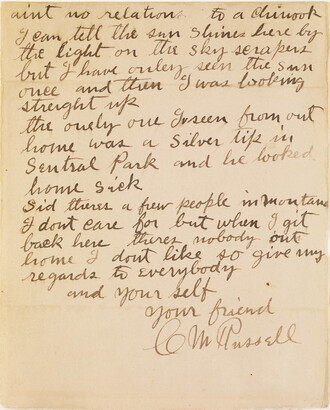 aint no relations to a chinook
I can tell the sun shines here by
the light on the sky scrapers
but I have onley seen the sun
once and then I was looking
streight up
the onely one I seen from out
home was a Silver tip in
Sentral Park and he looked
home sick
Sid theres a few people in montana
I dont care for but when I git
back here theres nobody out
home I dont like so give my
regards to everybody
and your self
your friend
C M Russell